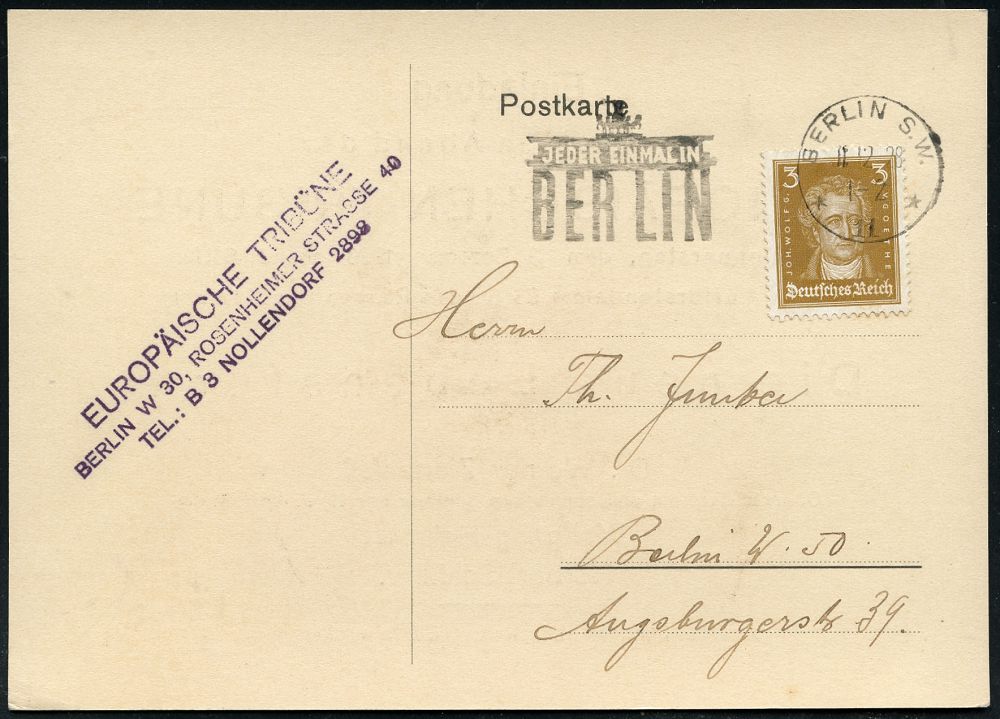 Postkarte
JEDER EINMAL IN
BERLIN
BERLIN S.W.
11.12.28
11
3 3
JOH. WOLFG. V. GOETHE
Deutsches Reich
EUROPÄISCHE TRIBÜNE
BERLIN W 30, ROSENHEIMER STRASSE 40
TEL.: B 3 NOLLENDORF 2898
Herrn
Th. Junker
Berlin W. 50.
Augsburgerstr 39.